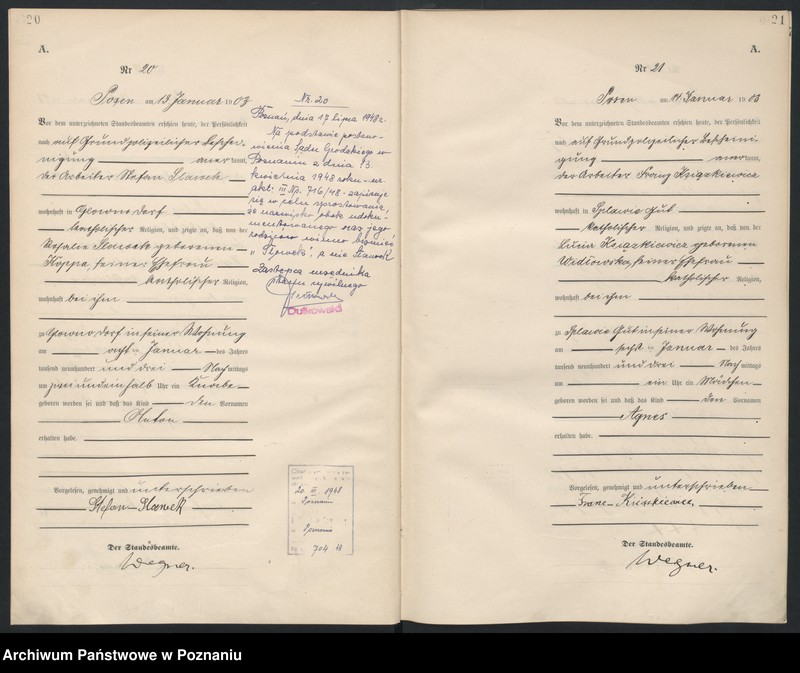 20
A.
Nr 20
Posen am 13 Januar 1903
Vor dem unterzeichneten Standesbeamten erschien heute, der Persönlichkeit
nach auf Grund polizeilicher Beschei-
nigung anerkannt,
der Arbeiter Stefan Slawek
wohnhaft in Glowno Dorf
katholischer Religion, und zeigte an, daß von der
Slawek geborenen
Koppa, seiner Ehefrau
katholischer Religion,
wohnhaft bei ihm
zu Glowno Dorf in seiner Wohnung
am acht ten Januar des Jahres
tausend neunhundert und drei Nachmittags
um zwei und einhalb Uhr ein Knabe
geboren worden sei und daß das Kind den Vornamen
Anton
erhalten habe.
Vorgelesen, genehmigt und unterschrieben
Stefan Slawek
Der Standesbeamte.
Wegner.
Nr. 20
Poznań, dnia 17 lipca 1948 r.
Na podstawie postano-
wienia Sądu Grodzkiego w
Poznaniu z dnia 13.
kwietnia 1948 roku nr.
akt. III Np. 716/48 zapisuje
się w celu sprostowania,
że nazwisko obok udoku-
mentowanego oraz jego
rodziców winno brzmieć
a nie Slawek
Zastępca urzędnika
stanu cywilnego
Dutkowski
20 III 1948
704 48
21
A.
Nr 21
Posen am 14 Januar 1903
Vor dem unterzeichneten Standesbeamten erschien heute, der Persönlichkeit
nach auf Grund polizeilicher Bescheini-
gung anerkannt,
der Arbeiter Franz Ksiązkiewicz
wohnhaft in Splawie Gut
katholischer Religion, und zeigte an, daß von der
Ksiązkiewicz geborenen
Widlowska, seiner Ehefrau
katholischer Religion,
wohnhaft bei ihm
zu Splawie Gut in seiner Wohnung
am sechs ten Januar des Jahres
tausend neunhundert und drei Nachmittags
um ein Uhr ein Mädchen
geboren worden sei und daß das Kind den Vornamen
Agnes
erhalten habe.
Vorgelesen, genehmigt und unterschrieben
Der Standesbeamte.
Wegner.
Archiwum Państwowe w Poznaniu